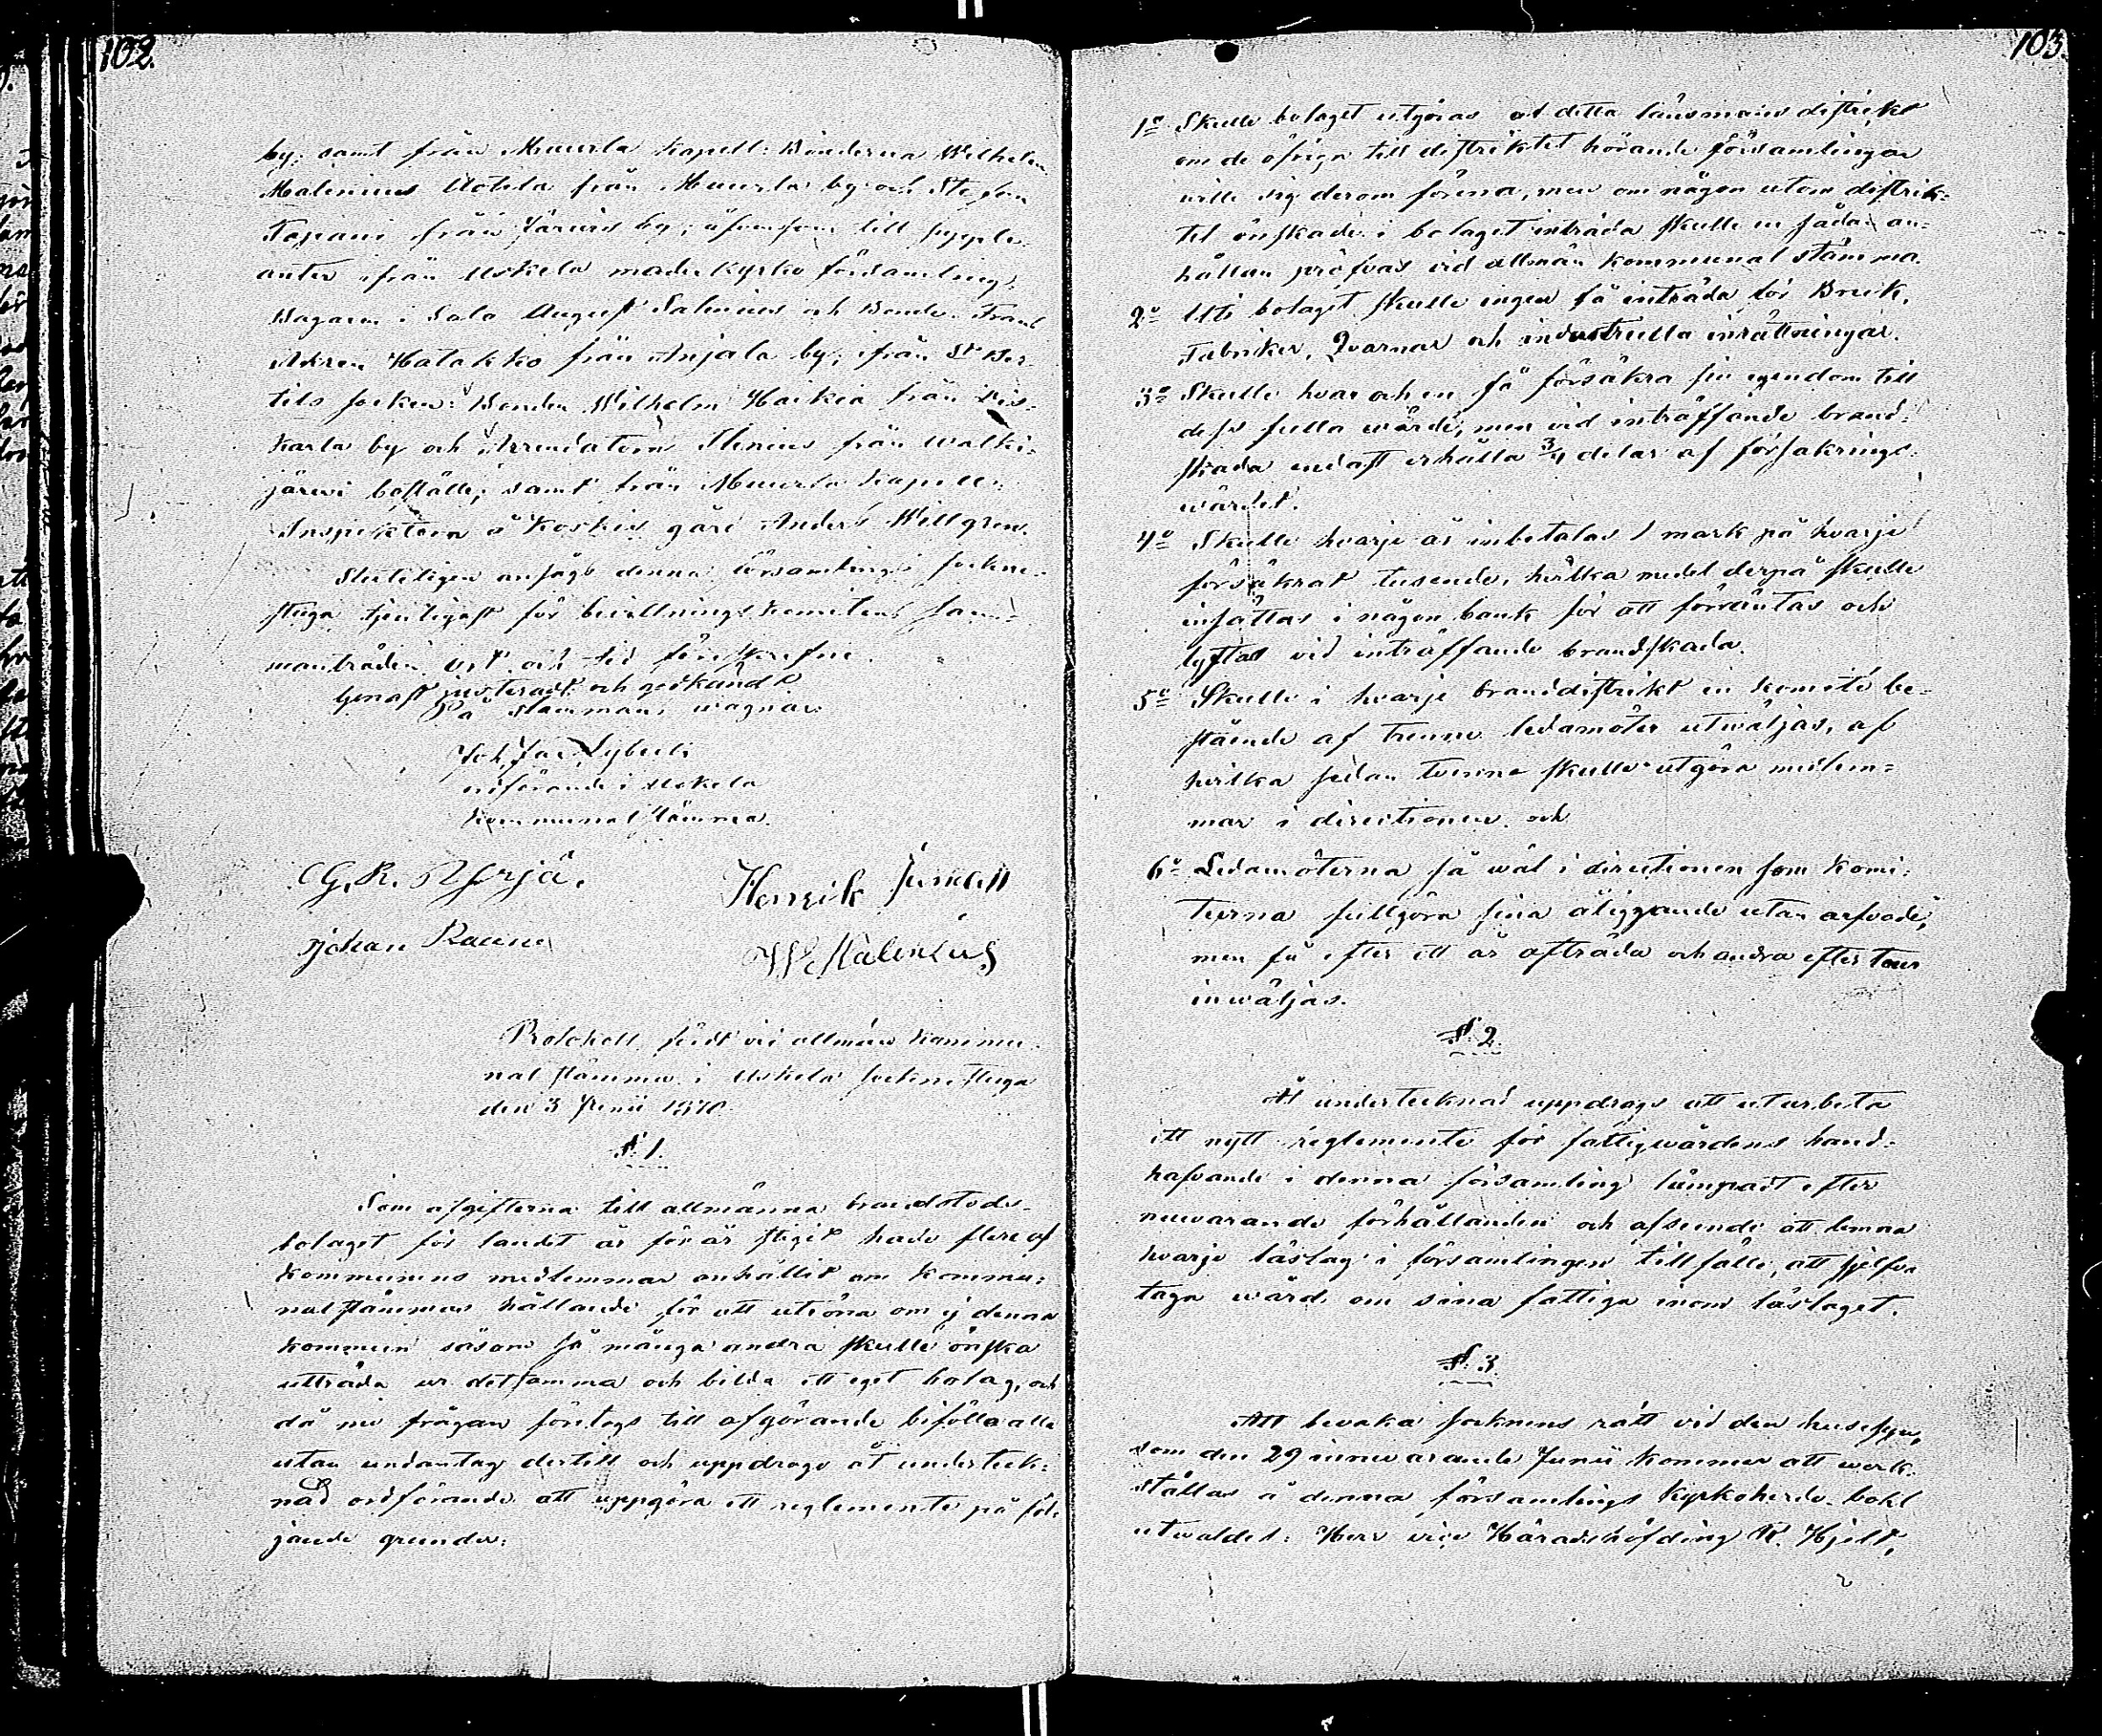 102.
by; samt från Muurla Kapell: Bönderna Wilhelm
Malenius Uotila från Muurla by och Stefan
Tapani från Järvis by; äfvensom till supple-
anter ifrån Uskela moderkyrko församling,
Bagaren i Salo August Salenius och Bonden Frans
Akren Hatakko från Anjala by; ifrån St Ber-
tils socken: Bonden Wilhelm Haikia från Kis-
karla by och Arrendatorn Alenius från walki-
järwi boställe; samt från Muurla Kapell:
Inspektorn å Koskis gård Anders Willgren.
Slutligen ansågs denna församlings sockne-
stuga tjenligast för bevillnings komitens sam-
manträden
Genast justeradt och godkändt
På stämmans wägnar:
Joh. Jac. Sjbeli
ordförande i Uskela
Kommunalstämma.
G. R. Yrjä.
Henrik
Johan Rauni
W. Malenius
Protokoll fördt vid allmän kommu-
nal stämma i Uskela sockne stuga
den 3 Junii 1870.
§ 1.
Som afgifterna till allmänna brandstods-
bolaget för landet år för år stigit hade flere af
kommunens medlemmar anhållit om kommu-
nal stämmas hållande för att utröna om ej denna
kommun såsom så många andra skulle önska
utträda ur detsamma och bilda ett eget bolag, och
då nu frågan företogs till afgörande biföllo alla
utan undantag dertill och uppdrogs åt underteck-
nad ordförande att uppgöra ett reglemente på föl-
jande grunder:
103.
1o Skulle bolaget utgöras af detta länsmans distrikt
om de öfriga till distriktet hörande församlingar
wille sig derom förena, men om någon utom distrik-
tet önskade i bolaget inträda skulle en sådan an-
hållan pröfvas vid allmän kommunal stämma.
2o Uti bolaget skulle ingen få inträda för Bruk,
Fabriker, Qvarnar och industriella inrättningar.
3o Skulle hvar och en få försäkra sin egendom till
dess fulla wärde, men vid inträffande brand-
skada endast erhålla 3/4 delar af försäkrings-
wärdet.
4o Skulle hvarje år inbetalas 1 mark på hvarje
försäkrat tusende, hvilka medel derpå skulle
insättas i någon bank för att förräntas och
lyftas vid inträffande brandskada.
5o Skulle i hvarje branddistrikt en komité be-
stående af trenne ledamöter utwäljas, af
hvilka sedan tvenne skulle utgöra medlem-
mar i directionen och
6o Ledamöterna så wäl i directionen som Komi-
téerna fullgöra sina åligganden utan arfvode,
men få efter ett år afträda och andra efter tour
inwäljas.
§ 2.
Åt undertecknad uppdrogs att utarbeta
ett nytt reglemente för fattigwårdens hand-
hafvande i denna församling lämpadt efter
nuvarande förhållanden och afseende att lemna
hvarje läslag i församlingen tillfälle, att sjelfva
taga wård om sina fattiga inom läslaget.
§ 3.
Att bevaka socknens rätt vid den husesyn,
som den 29 innevarande Junii kommer att werk-
ställas å denna församlings Kyrkoherde-bohl
utwaldes: Herr vice Häradshöfding R. Hjelt,